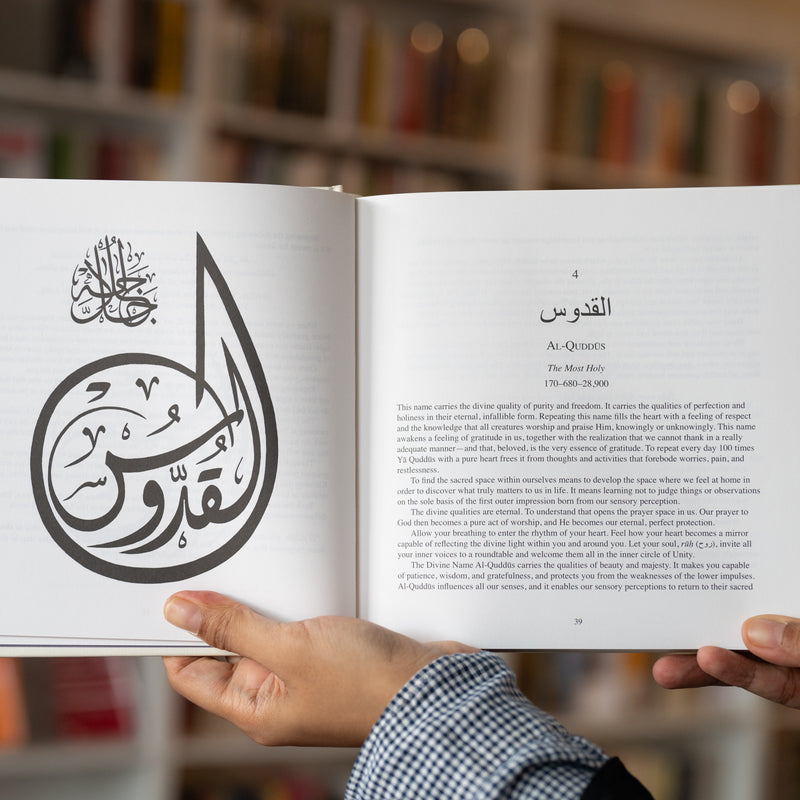 جل جلاله
القدوس
4
القدوس
AL-QUDDŪS
The Most Holy
170–680–28,900
This name carries the divine quality of purity and freedom. It carries the qualities of perfection and
holiness in their eternal, infallible form. Repeating this name fills the heart with a feeling of respect
and the knowledge that all creatures worship and praise Him, knowingly or unknowingly. This name
awakens a feeling of gratitude in us, together with the realization that we cannot thank in a really
adequate manner—and that, beloved, is the very essence of gratitude. To repeat every day 100 times
Yā Quddūs with a pure heart frees it from thoughts and activities that forebode worries, pain, and
restlessness.
To find the sacred space within ourselves means to develop the space where we feel at home in
order to discover what truly matters to us in life. It means learning not to judge things or observations
on the sole basis of the first outer impression born from our sensory perception.
The divine qualities are eternal. To understand that opens the prayer space in us. Our prayer to
God then becomes a pure act of worship, and He becomes our eternal, perfect protection.
Allow your breathing to enter the rhythm of your heart. Feel how your heart becomes a mirror
capable of reflecting the divine light within you and around you. Let your soul, rūh (روح), invite all
your inner voices to a roundtable and welcome them all in the inner circle of Unity.
The Divine Name Al-Quddūs carries the qualities of beauty and majesty. It makes you capable
of patience, wisdom, and gratefulness, and protects you from the weaknesses of the lower impulses.
Al-Quddūs influences all our senses, and it enables our sensory perceptions to return to their sacred
39